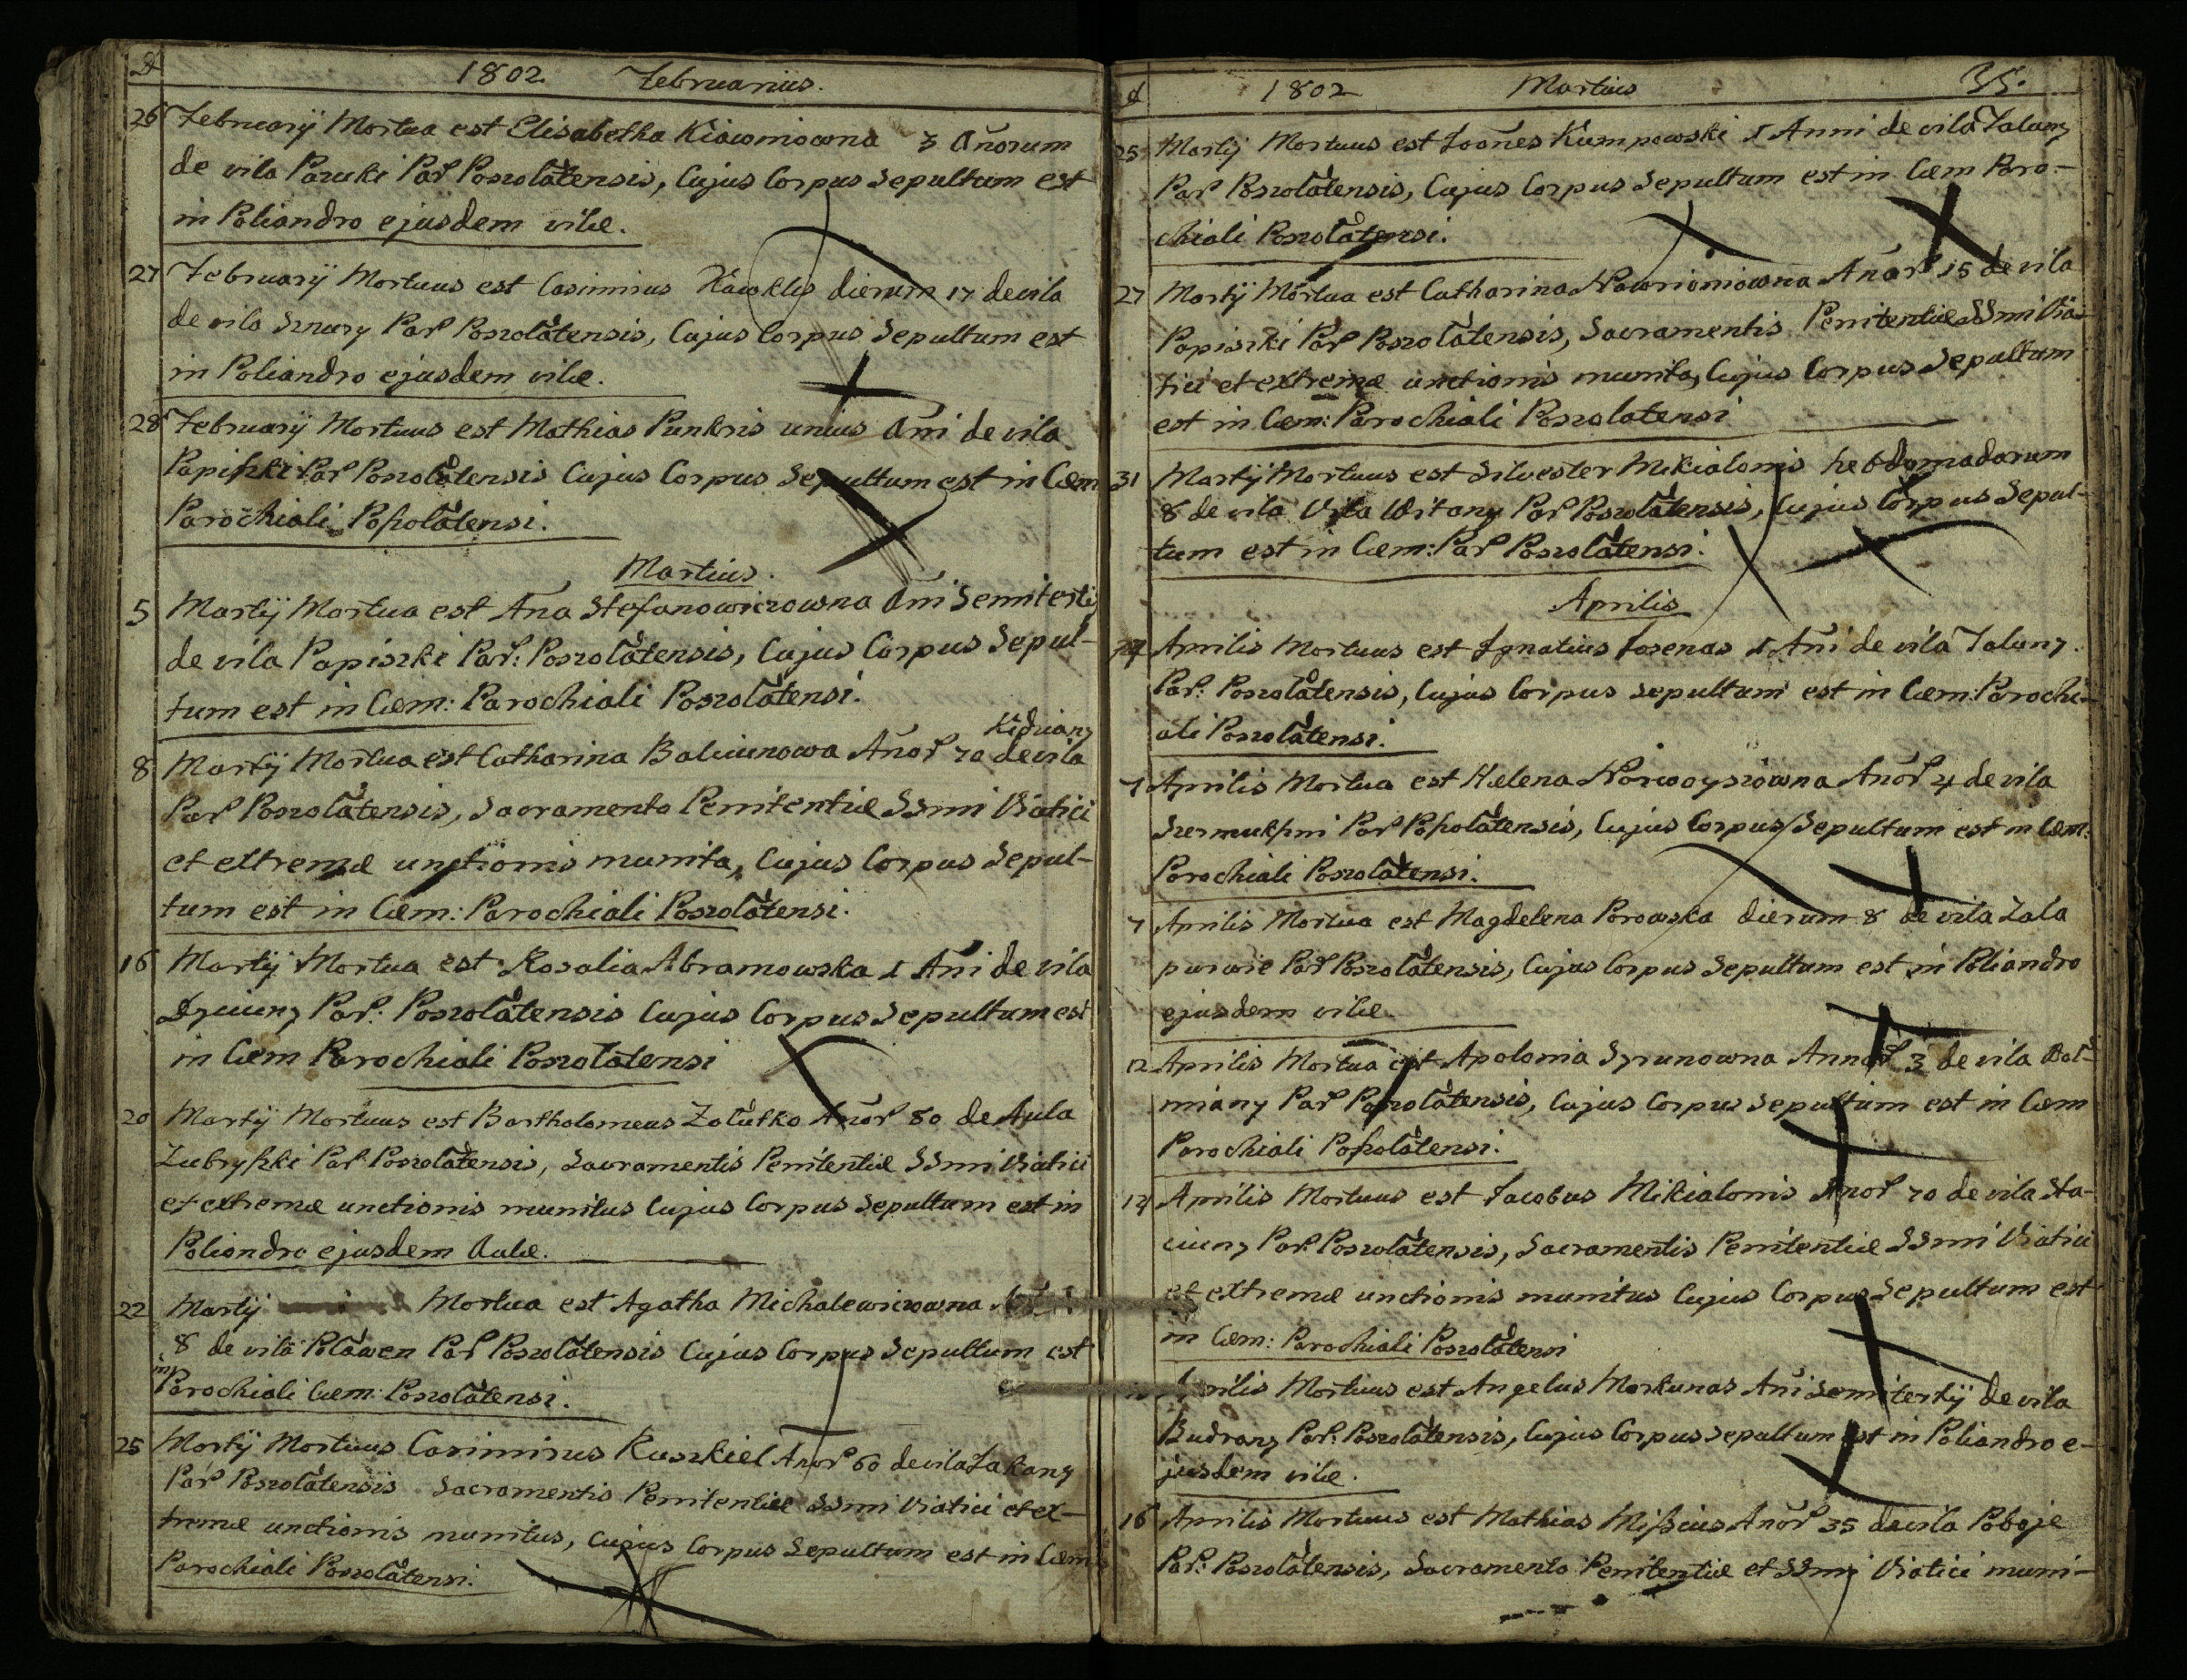 D 1802 Februarius.
26 Februarij Mortua est Elisabetha Kiawniowna 3 Añorum
de vila Paruki Par Poszolatensis, Cujus Corpus Sepultum est
in Poliandro ejusdem vilæ.
27 Februarij Mortuus est Casimirus Hawklis dierum 17 de vila
de vila Sznury Par Poszolatensis, Cujus Corpus Sepultum est
in Poliandro ejusdem vilæ.
28 Februarij Mortuus est Mathias Punkris unius Añi de vila
Papiszki Par Poszolatensis Cujus Corpus Sepultum est in Cæm
Parochiali Poszolatensi.
Martius.
5 Martij Mortua est Aña Stefanowiczowna Añi Semitertij
de vila Papiszki Par: Poszolatensis, Cujus Corpus Sepul-
tum est in Cæm: Parochiali Poszolatensi.
Kidziany
8 Martij Mortua est Catharina Balciunowa Añor 70 de vila
Par Poszolatensis, Sacramento Penitentiæ SSmi Viatici
et extremæ unctionis munita, Cujus Corpus Sepul-
tum est in Cæm: Parochiali Poszolatensi.
16 Martij Mortua est Rosalia Abramowska 1 Añi de vila
Dziuiny Par: Poszolatensis Cujus Corpus Sepultum est
in Cæm Parochiali Poszolatensi
20 Martij Mortuus est Bartholomeus Zolutko Añor 80 de Aula
Zubryszki Par Poszolatensis, Sacramentis Penitentiæ SSmi Viatici
et extremæ unctionis munitus Cujus Corpus Sepultum est in
Poliandro ejusdem Aulæ.
22 Martij Mortua est Agatha Michalewiczowna
8 de vila Poławen Par Poszolatensis Cujus Corpus Sepultum est
in Parochiali Cæm: Poszolatensi.
25 Martij Mortuus Casimirus Ruszkiel Añor 60 de vila Zakany
Par Poszolatensis Sacramentis Penitentiæ SSmi Viatici et ex-
tremæ unctionis munitus, Cujus Corpus Sepultum est in Cæm
Parochiali Poszolatensi.
d 1802 Martius 35.
25 Martij Mortuus est Joañes Kumpowski 1 Anni de vila Zaluny
Par Poszolatensis, Cujus Corpus Sepultum est in Cæm Paro-
chiali Poszolatensi.
27 Martij Mortua est Catharina Nawrioniowna Añor 15 de vila
Papiszki Par Poszolatensis, Sacramentis Penitentiæ SSmi Via-
tici et extremæ unctionis munita, Cujus Corpus Sepultum
est in Cæm: Parochiali Poszolatensi
31 Martij Mortuus est Silvester Mikialonis hebdomadarum
8 de vila Vila Witany Par Poszolatensis, Cujus Corpus Sepul-
tum est in Cæm: Par Poszolatensi.
Aprilis
Aprilis Mortuus est Ignatius Josenas 1 Añi de vila Zaluny
Par: Poszolatensis, Cujus Corpus sepultum est in Cæm: Parochi-
ali Poszolatensi.
7 Aprilis Mortua est Helena Norwoyszowna Añor 4 de vila
Szermukszni Par Poszolatensis, Cujus Corpus Sepultum est in Cæm:
Parochiali Poszolatensi.
7 Aprilis Mortua est Magdelena Porowska dierum 8 de vila Zala
purwie Par Poszolatensis, Cujus Corpus Sepultum est in Poliandro
ejusdem vilæ.
12 Aprilis Mortua est Apolonia Szrunowna Annor 3 de vila Bal-
miany Par Poszolatensis, Cujus Corpus Sepultum est in Cæm
Parochiali Poszolatensi.
14 Aprilis Mortuus est Jacobus Mikialonis Añor 70 de vila Sta-
ciuny Par: Poszolatensis, Sacramentis Penitentiæ SSmi Viatici
et extremæ unctionis munitus Cujus Corpus Sepultum est
in Cæm: Parochiali Poszolatensi
Aprilis Mortuus est Angelus Markunas Añi Semitertij de vila
Budrany Par: Poszolatensis, Cujus Corpus sepultum est in Poliandro e-
jusdem vilæ.
16 Aprilis Mortuus est Mathias Miszcius Añor 35 de vila Poboje
Par: Poszolatensis, Sacramento Penitentiæ et SSmi Viatici muni-